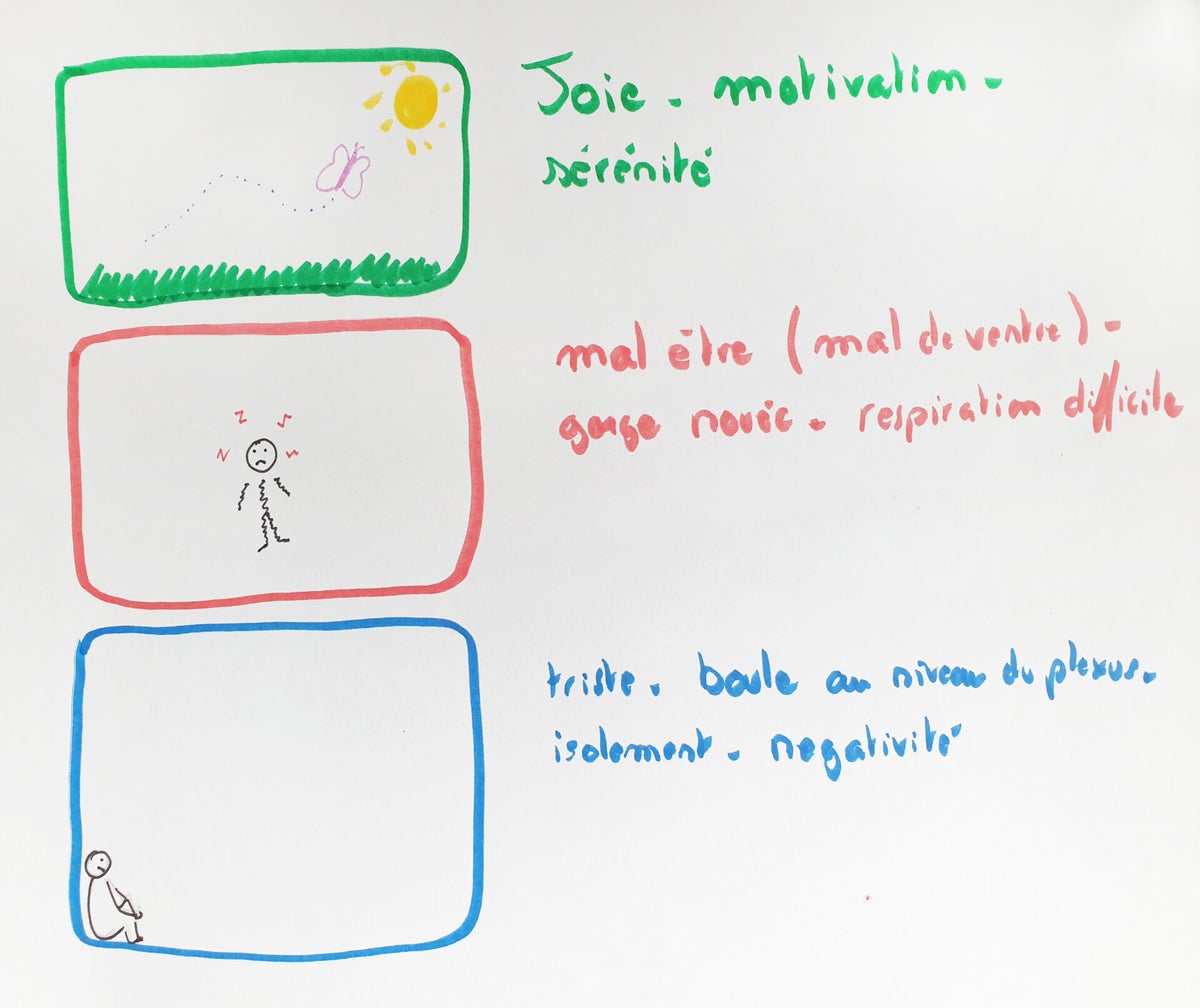 Joie - motivation -
sérénité
mal être (mal de ventre) -
gorge nouée - respiration difficile
triste - boule au niveau du plexus -
isolement - negativité